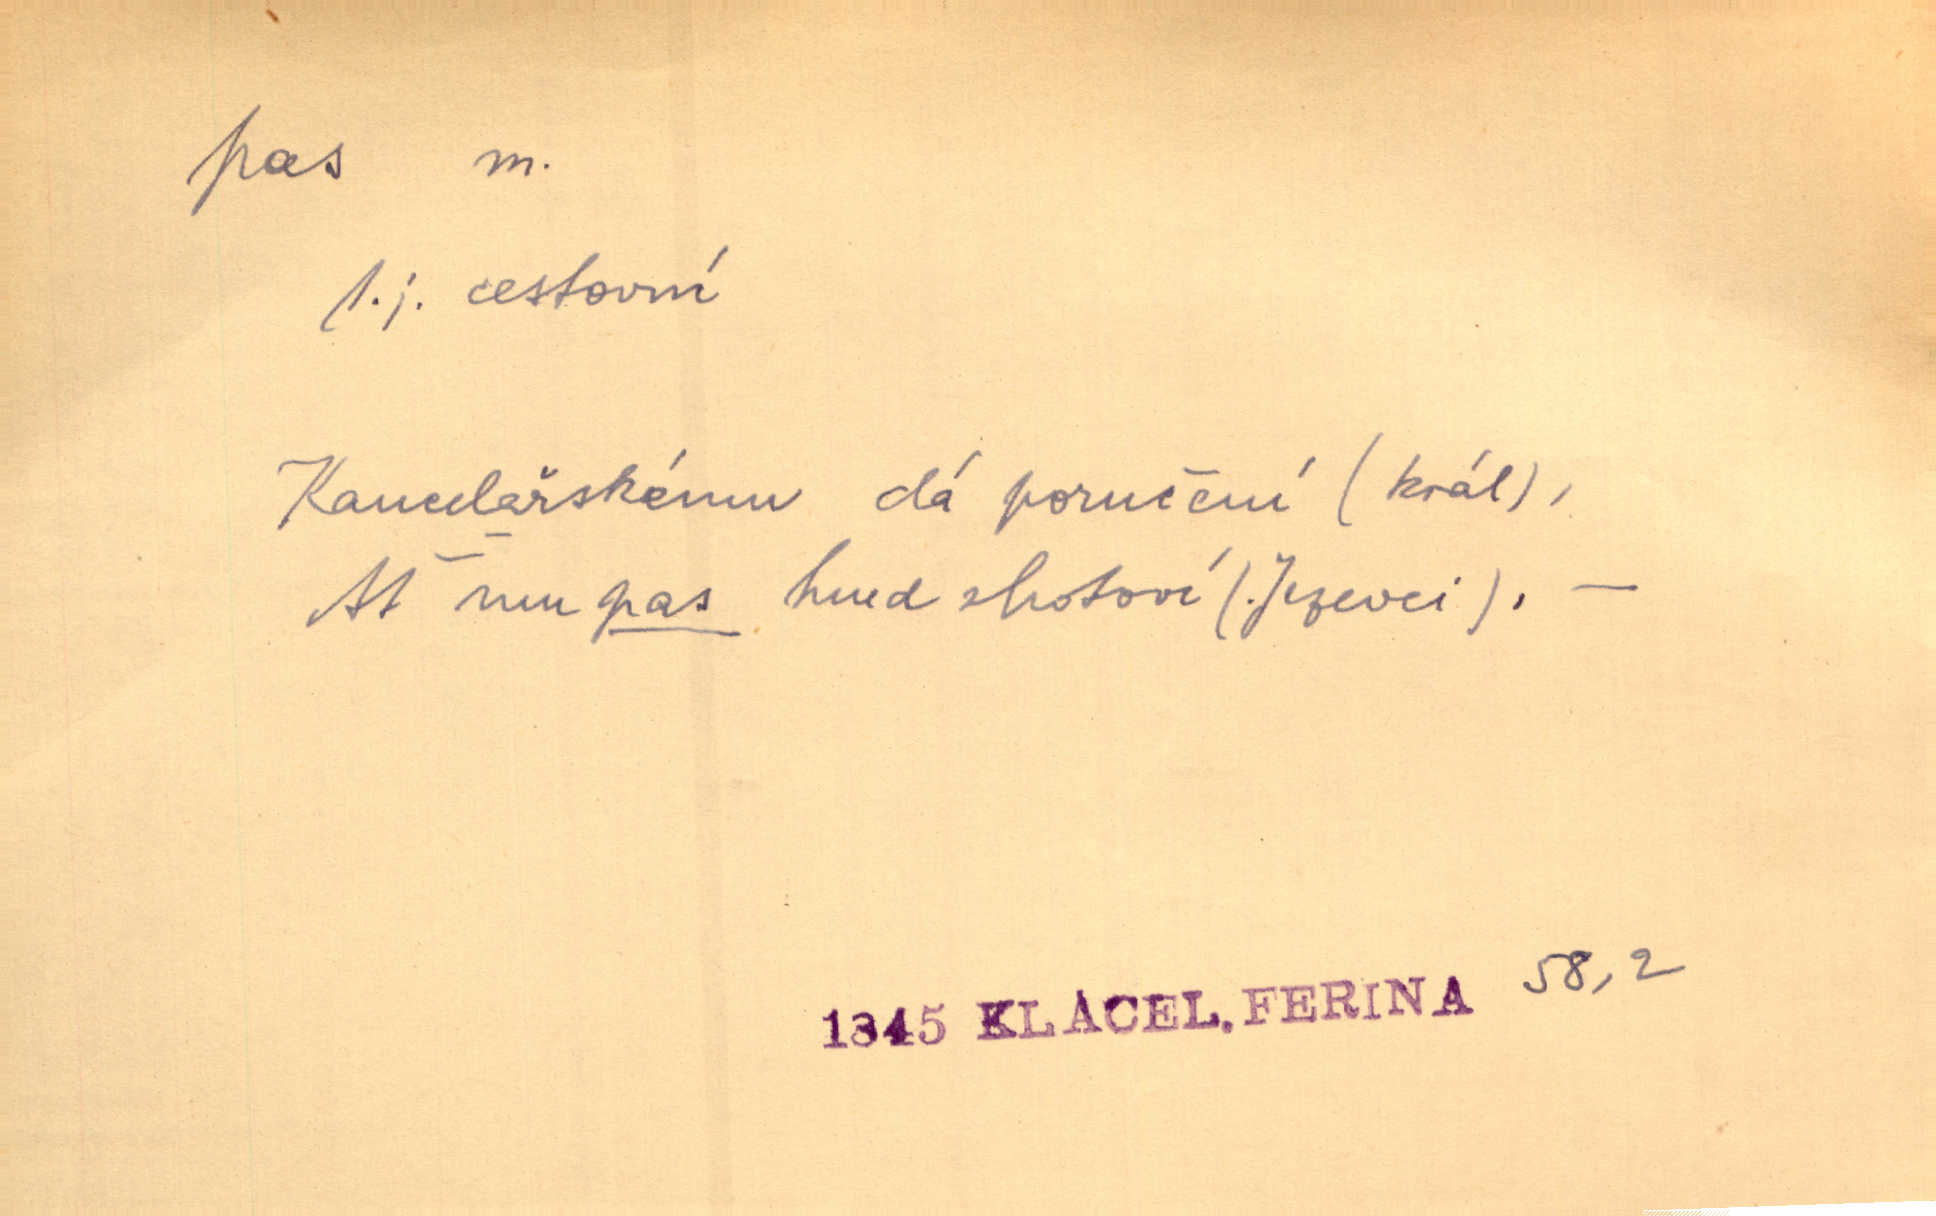 pas m.
t.j. cestovní
Kancelářskému dá poručení (král),
Ať mu pas hned zhotoví (Jezevci). —
1845 KLÁCEL. FERINA 58,2